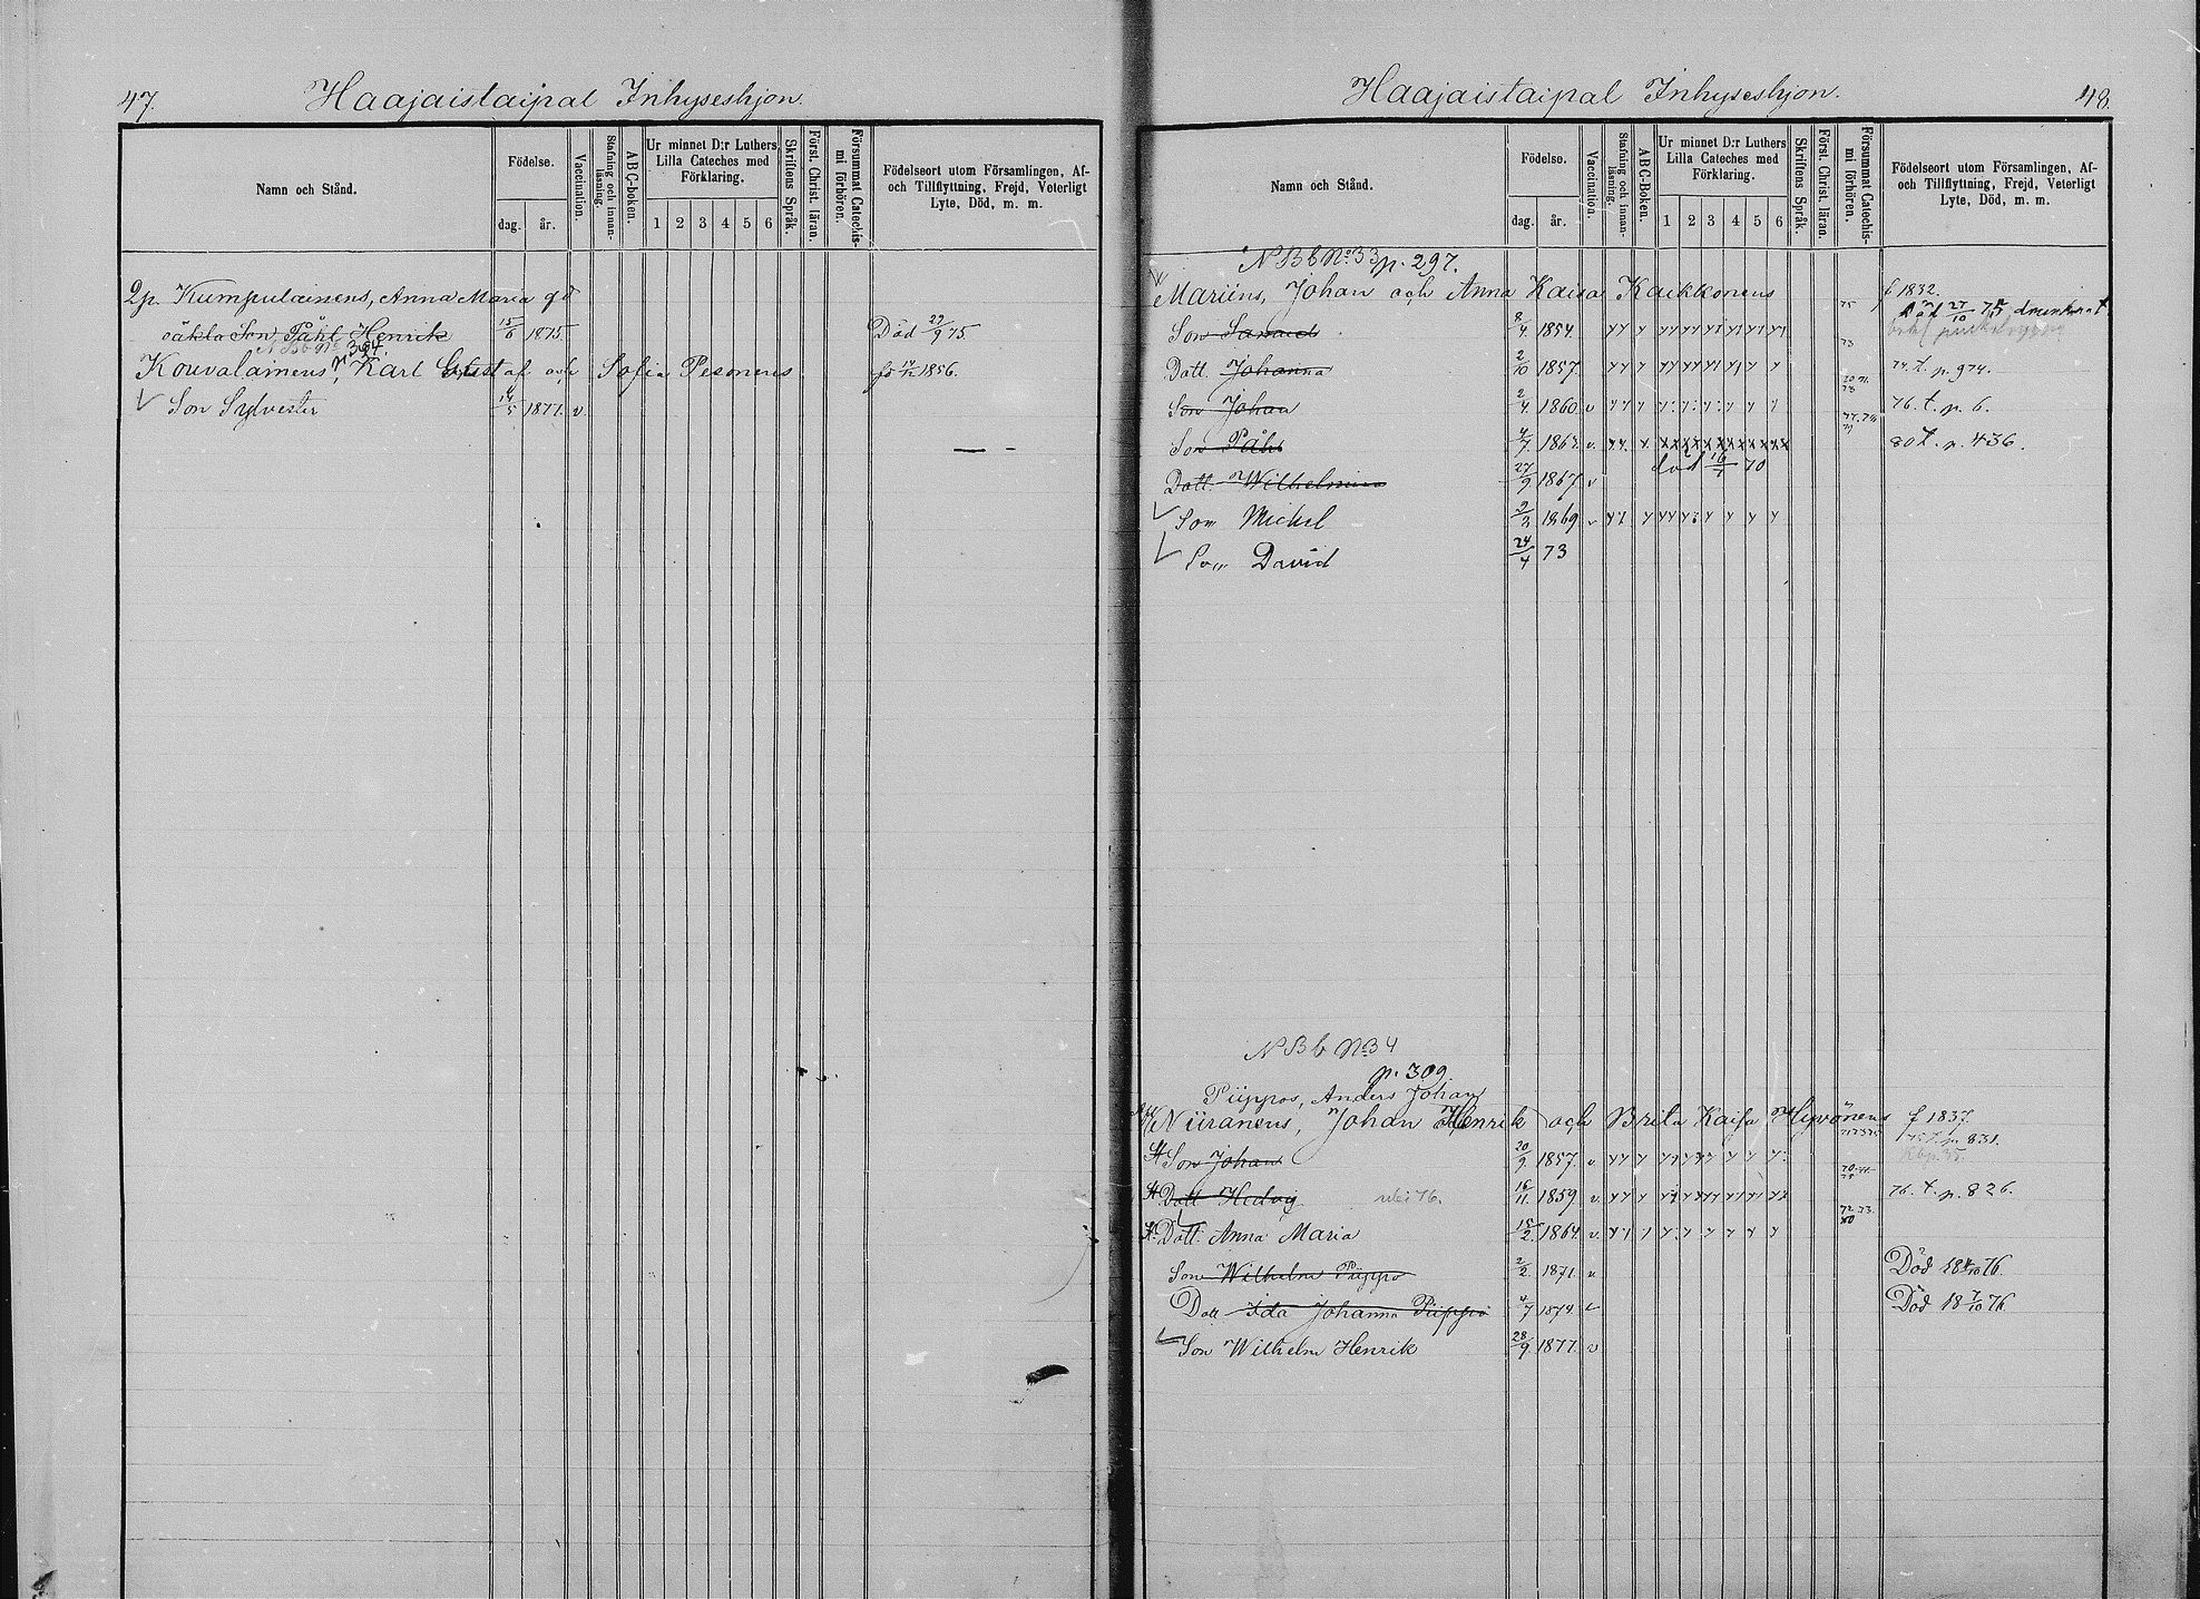 47.
Haajaistaipal Inhyseshjon.
Namn och Stånd.
Födelse.
dag. år.
Vaccination.
Stafning och innan-läsning.
A B C-boken.
Ur minnet D:r Luthers
Lilla Cateches med
Förklaring.
1 2 3 4 5 6
Skriftens Språk.
Först. Christ. läran.
Försummat Catechis-
mi förhören.
Födelseort utom Församlingen, Af-
och Tillflyttning, Frejd, Veterligt
Lyte, Död, m. m.
2p. Kumpulainens, Anna Maria
oäkta Son Påhl Henrik 15/6 1875. Död 29/9 75.
N Bb No 304
Kouvalainens, Karl Gustaf och Sofia Pesonens 1856.
Son Sylvester 14/5 1877. v.
Haajaistaipal Inhyseshjon.
48.
Namn och Stånd.
Födelse.
dag. år.
Vaccination.
Stafning och innan-läsning.
A B C-boken.
Ur minnet D:r Luthers
Lilla Cateches med
Förklaring.
1 2 3 4 5 6
Skriftens Språk.
Först. Christ. läran.
Försummat Catechis-
mi förhören.
Födelseort utom Församlingen, Af-
och Tillflyttning, Frejd, Veterligt
Lyte, Död, m. m.
N Bb No 33 p. 297.
Mariins, Johan och Anna Kaisa Kaikkonens f 1832.
död 27/10 drunknat
Son Samuel 8/4 1854. 75
Dott. Johanna 2/10 1857. 73 74. t. p. 974.
Son Johan 2/4 1860 v 76. t. p. 6.
Son Påhl 4/7 1862 v. 80 t. p. 436.
Dott. Wilhelmina 27/9 1867 v död 16/1 70
Son Michel 2/3 1869 v
Son David 24/4 73
N Bb No 34
p. 309.
Piippos, Anders Johan
Niiranens, Johan Henrik och Brita Kaisa Hyvönens f 1837.
Son Johan 20/9 1857. v. p. 831.
Dott Hedvig 16/11 1859 v. 76. t. p. 826.
Dott. Anna Maria 15/2 1864. v.
Son Wilhelm Piippo 2/2 1871. v Död 76.
Dott Ida Johanna Piippo 4/7 1874 v Död 18 7/10 76
Son Wilhelm Henrik 28/9 1877. v